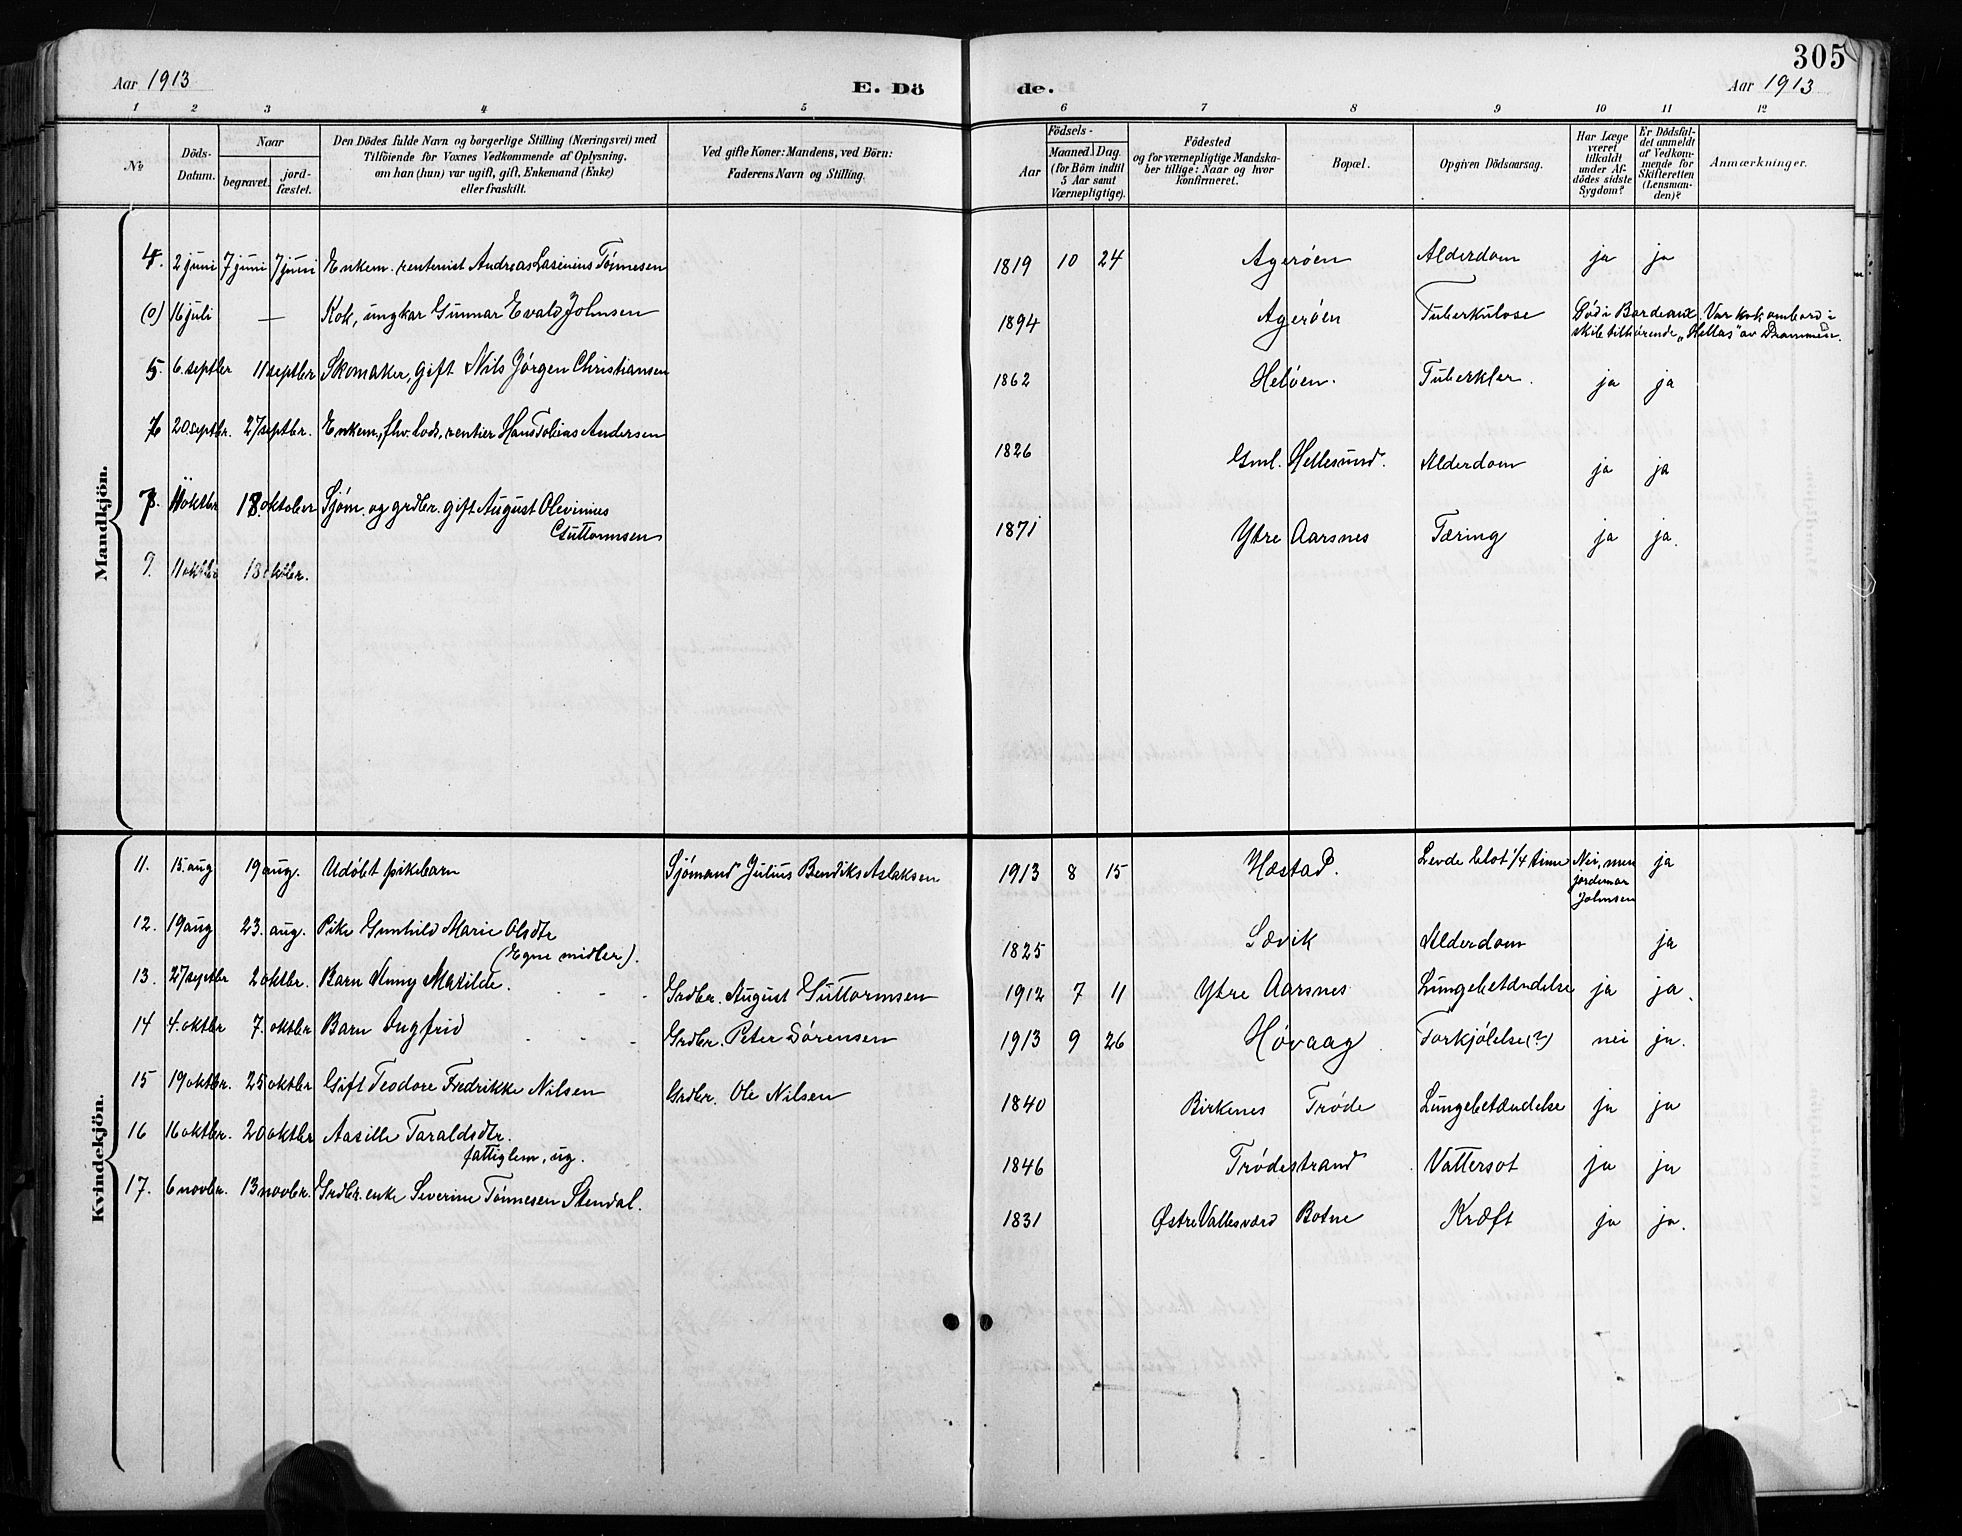 305
Aar 1913 E. Dö de. Aar 1913
1 2 3 4 5 6 7 8 9 10 11 12
№ Döds-Datum. Naar begravet. jord-fæstet. Den Dödes fulde Navn og borgerlige Stilling (Næringsvei) med Tilföiende for Voxnes Vedkommende af Oplysning. om han (hun) var ugift, gift, Enkemand (Enke) eller fraskilt. Ved gifte Koner: Mandens, ved Börn: Faderens Navn og Stilling. Födsels- Aar Maaned. Dag. (for Börn indtil 5 Aar samt Værnepligtige). Födested og for værnepligtige Mandska-ber tillige: Naar og hvor konfirmeret. Bopæl. Opgiven Dödsaarsag. Har Læge været tilkaldt under Af-dödes sidste Sygdom? Er Dödsfal-det anmeldt af Vedkom-mende for Skifteretten (Lensman-den)? Anmærkninger.
Mandkjön.
4. 2 juni 7 juni 7 juni Enkem. renterist Andreas Tønnesen 1819 10 24 Agerøen Alderdom ja ja
(0) 16 juli — Kok, ungkar Gunnar Evald Johnsen 1894 Agerøen Tuberkulose Død i Bordeaux. Var kok ombord i
skib tilhørende "Hellas" av Drammen.
5. 6. septbr 11 septbr Skomaker, gift Nils Jørgen Christiansen 1862 Heløen. Tuberkler. ja ja
20. septbr. 27 septbr. Enkem., fhv. lods, rentier Hans Tobias Andersen 1826 Gml. Hellesund. Alderdom ja ja
7. 11 oktbr 18. oktober Sjøm. og grdbr. gift August Olevinius
Guttormsen 1871 Ytre Aarsnes Tæring ja ja.
9. 11 oktbr 18 oktbr.
Kvindekjön.
11. 15. aug 19 aug. Udøbt pikebarn Sjømand Julius Bendiks Aslaksen 1913 8 15 Hæstad. Levde blot 1/4 time Nei, men
jordemor
Johnsen ja
12. 19 aug 23. aug. Pike Gunhild Marie Olsdtr
(Egne midler). 1825 Sævik Alderdom ja
13. 27 septbr 2 oktbr. Barn Anny Matilde. Grdbr. August Guttormsen 1912 7 11 Ytre Aarsnes Lungebetændelse ja ja.
14 4. oktbr 7. oktbr Barn Ingfrid Grdbr. Peter Sørensen 1913 9 26 Høvaag Forkjølelse (?) nei ja.
15 19 oktbr. 25 oktbr Gift Teodore Fredrikke Nilsen Grdbr. Ole Nilsen 1840 Birkenes Trøde Lungebetændelse ja ja
16 16 oktbr. 20 oktbr Aasille Taraldsdtr.
fattiglem, ug. 1846 Trødestrand Vattersot ja ja
17. 6 novbr. 13 novbr. Grdbr. enke Severine Tønnesen Stendal. 1831 Østre Vallesverd Botne Kræft ja ja.